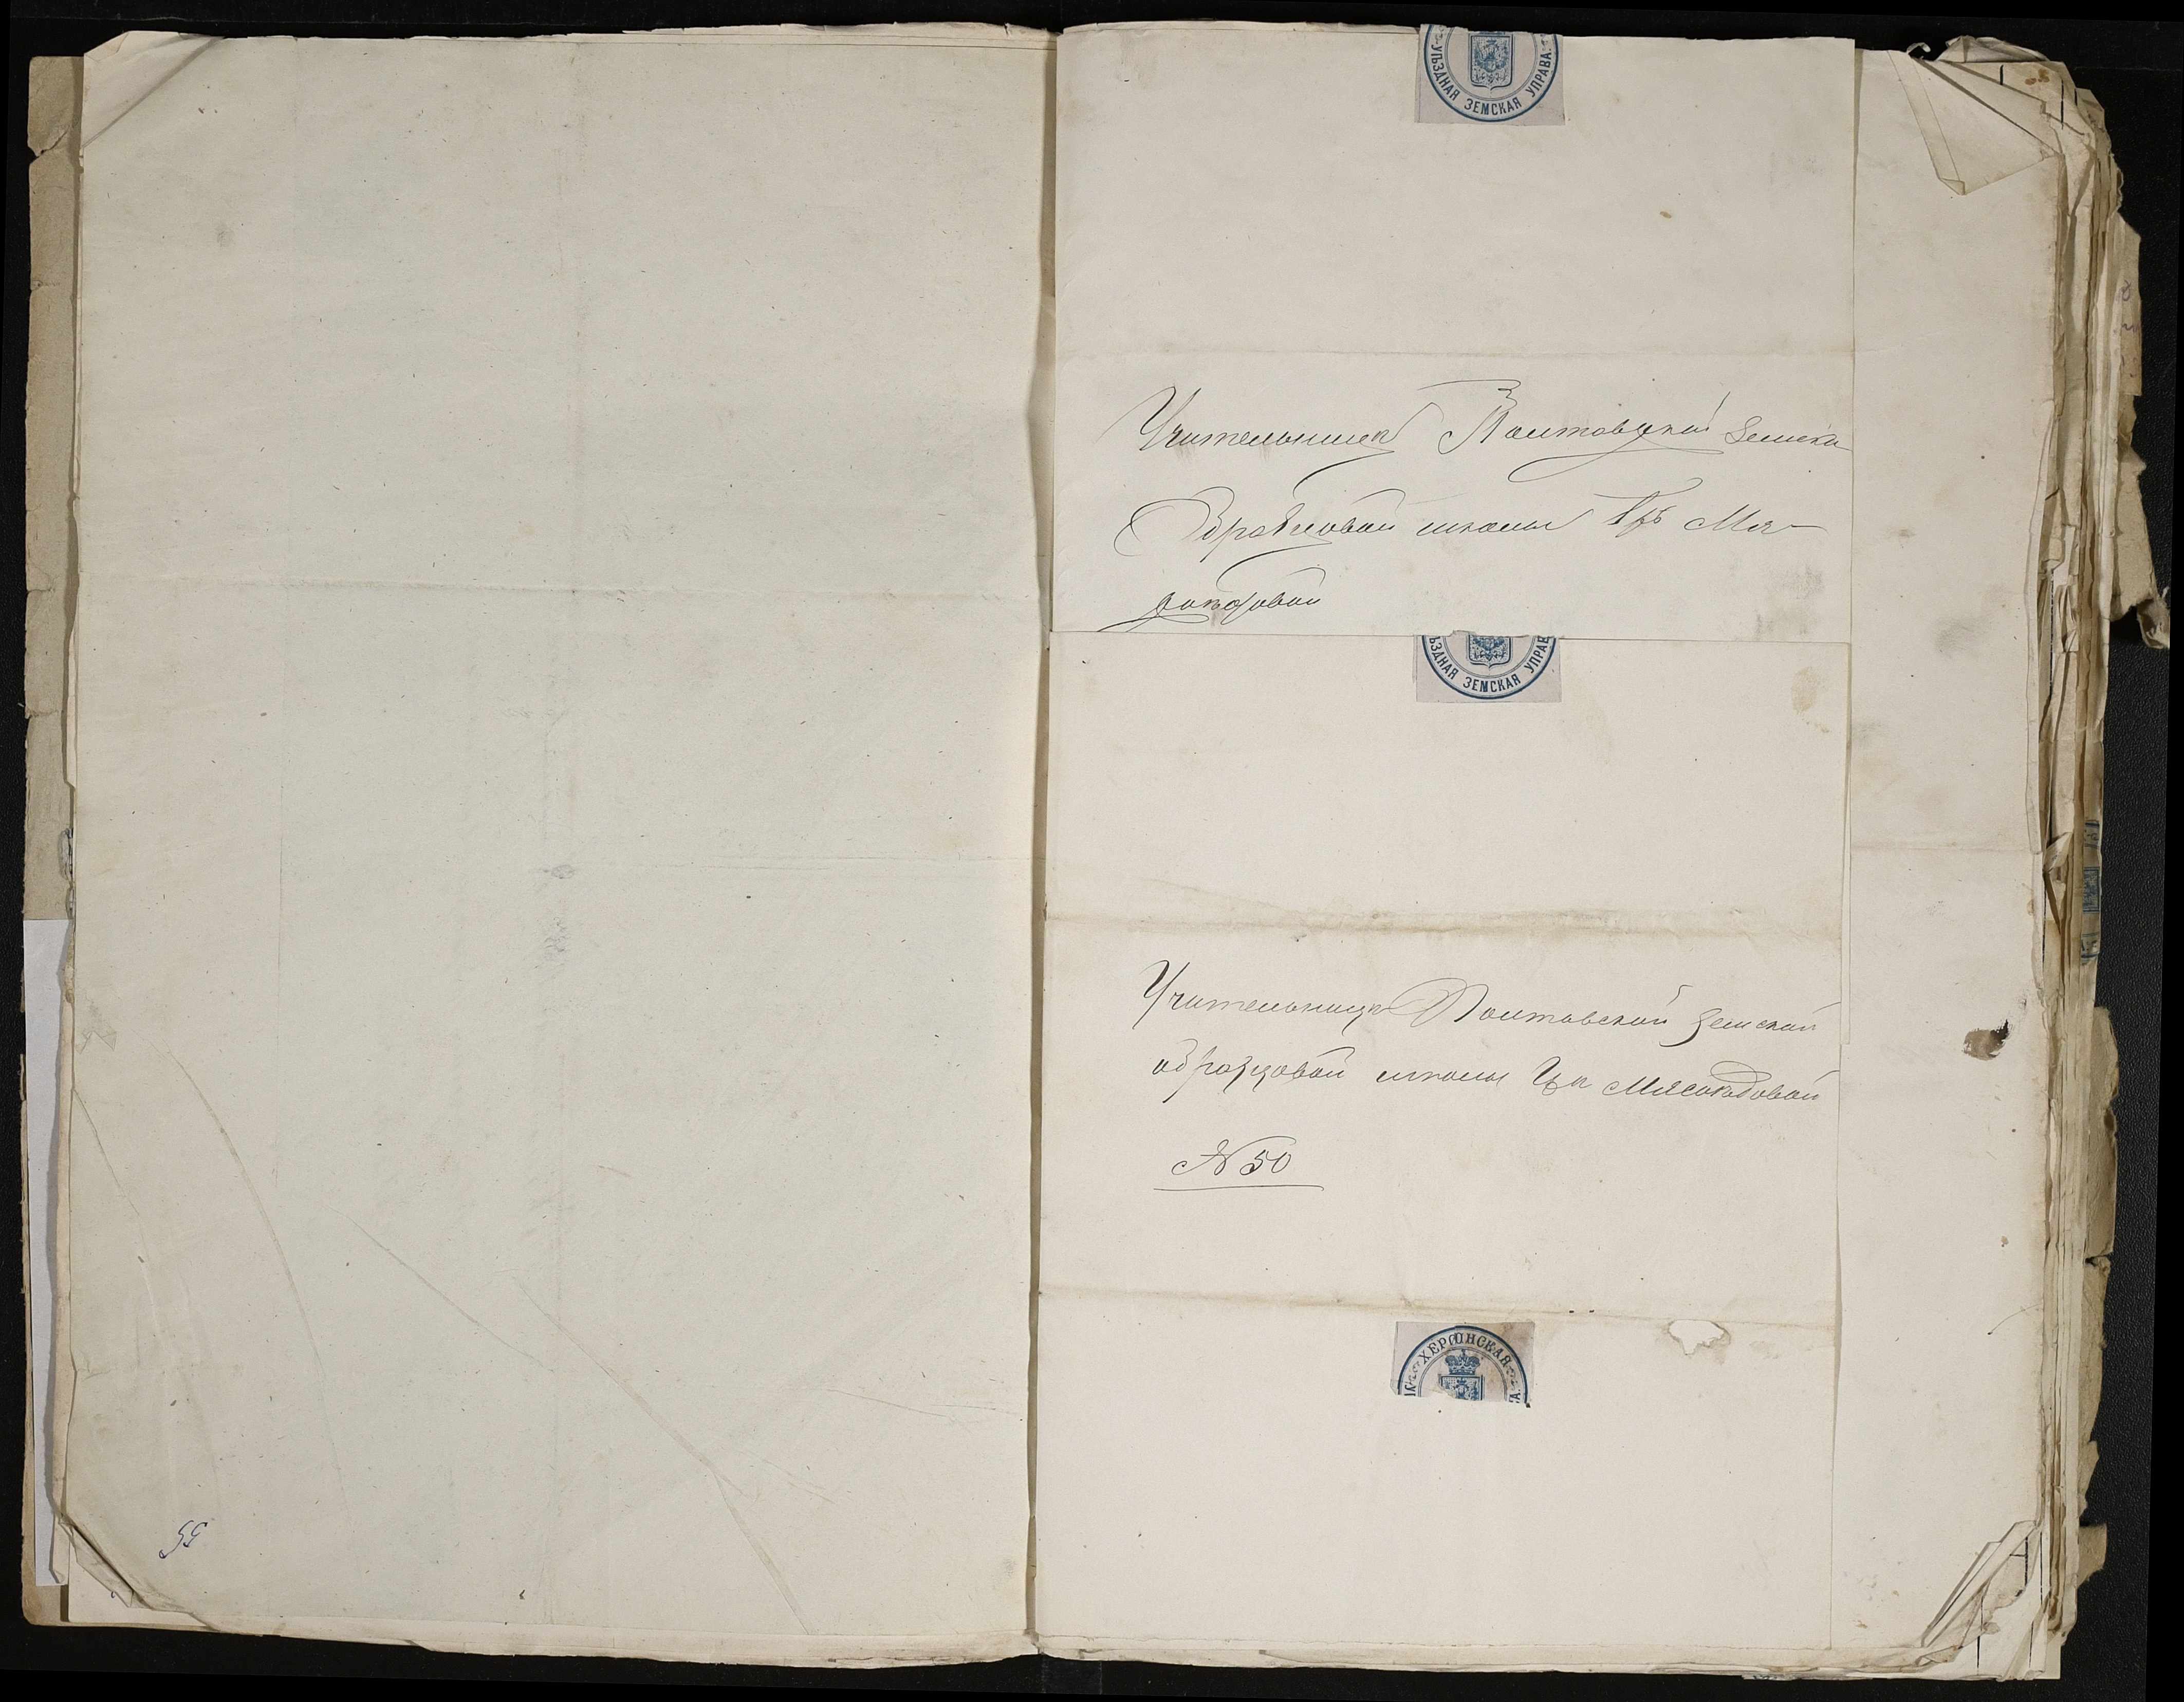 УѢЗДНАЯ ЗЕМСКАЯ УПРАВА
Учительницѣ Полтавской Земско
Образцовой школы Г-жѣ Мя-
соѣдовой
ѢЗДНАЯ ЗЕМСКАЯ УПРАВ
Учительницѣ Полтавской Земской
образцовой школы Г-жѣ Мясоѣдовой
№ 50
ХЕРСОНСКАЯ
55